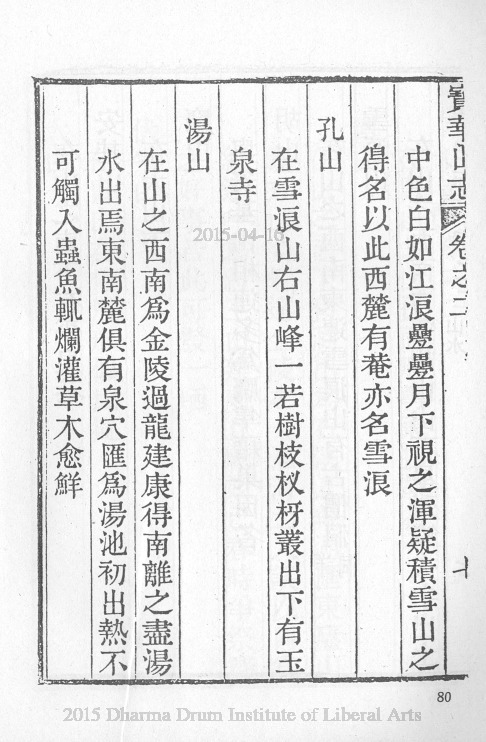 寶華山志 卷之二 山水 七
中色白如江浪疊疊月下視之渾疑積雪山之
得名以此西麓有菴亦名雪浪
孔山
在雪浪山右山峰一若樹枝杈枒叢出下有玉
泉寺
湯山
在山之西南爲金陵過龍建康得南離之盡湯
水出焉東南麓俱有泉穴匯爲湯池初出熱不
可觸入蟲魚輒爛灌草木愈鮮
2015-04-16
80
2015 Dharma Drum Institute of Liberal Arts